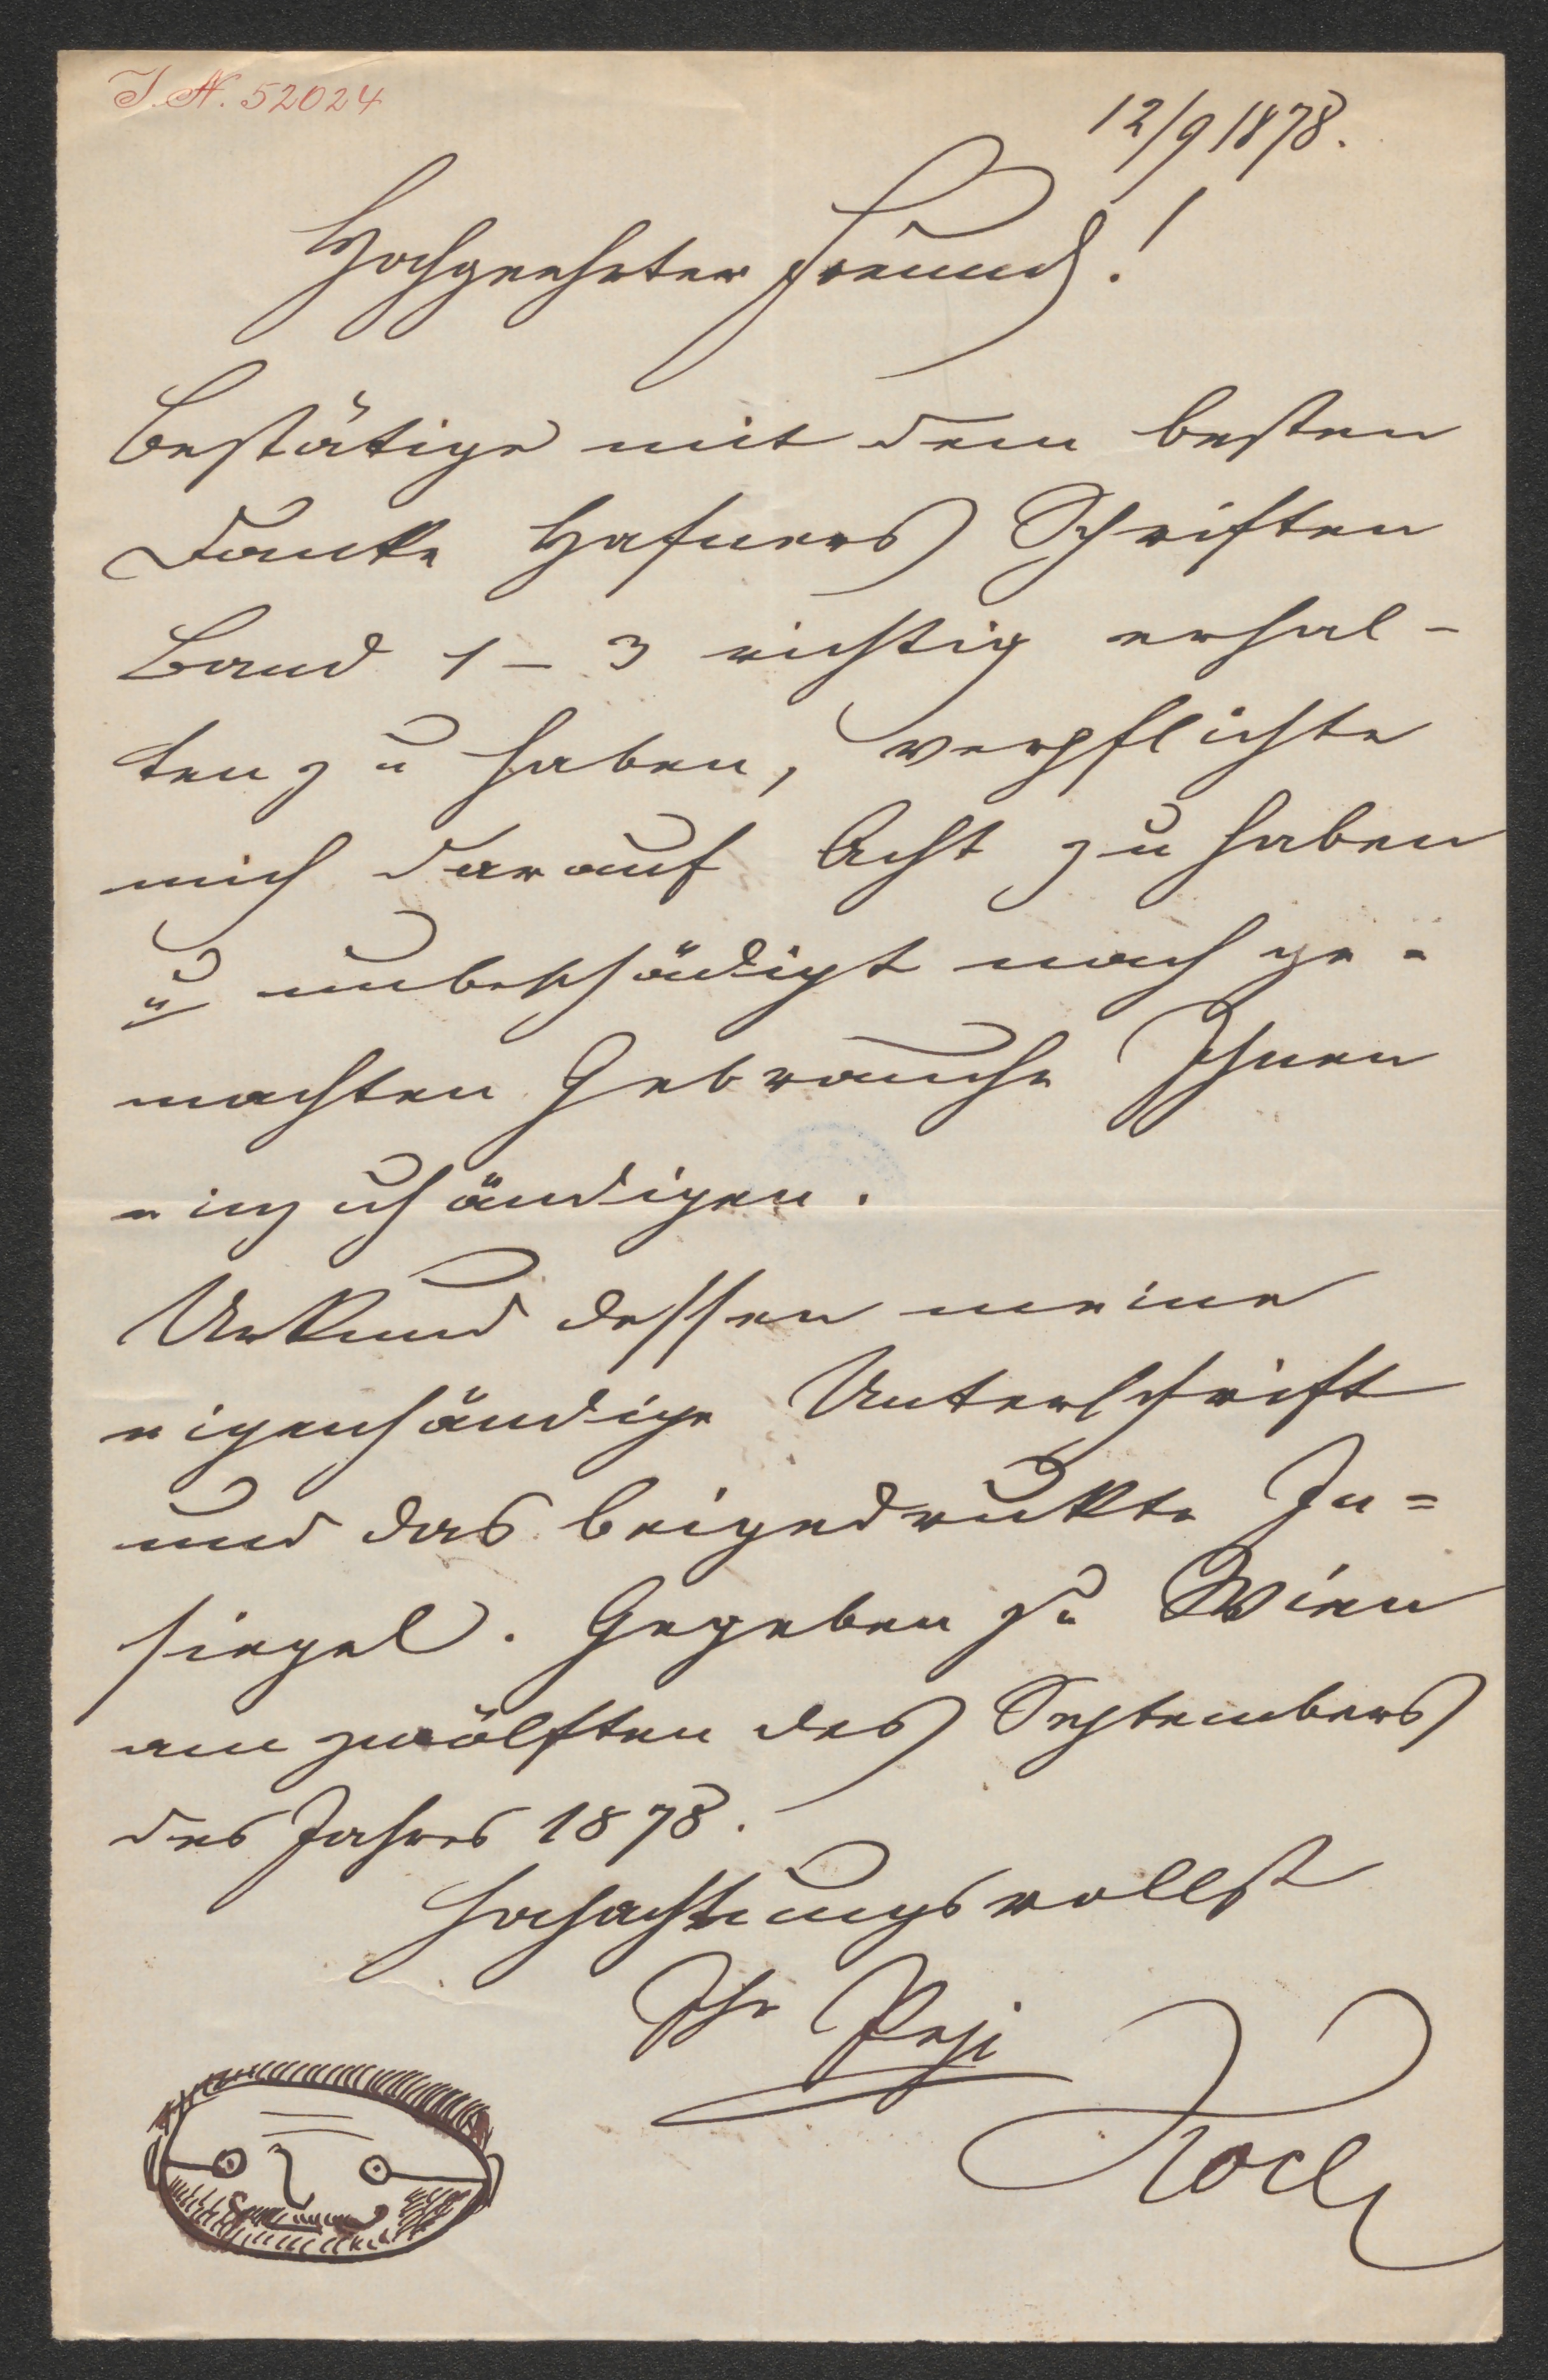 I. N. 52024
12/9 1878.
Hochgeehrter Freund!
Bestätige mit dem besten
Danke Hafners Schriften
Band 1 – 3 richtig erhal-
ten zu haben, verpflichte
mich darauf Acht zu haben
u unbeschädigt nach ge-
machten Gebrauche Ihnen
einzuhändigen.
Urkund dessen meine
eigenhändige Unterschrift
und das beigedrukte In=
siegel. Gegeben zu Wien
am zwölften des Septembers
des Jahres 1878.
Hochachtungsvollst
Ihr Pepi
Koch